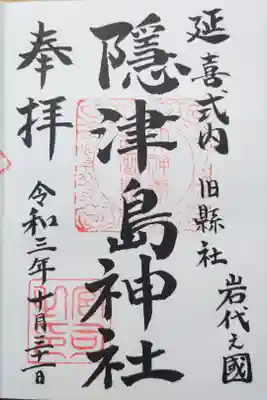 延喜式内 旧縣社
岩代之國
隠津島神社
奉拝
令和三年十月三十一日